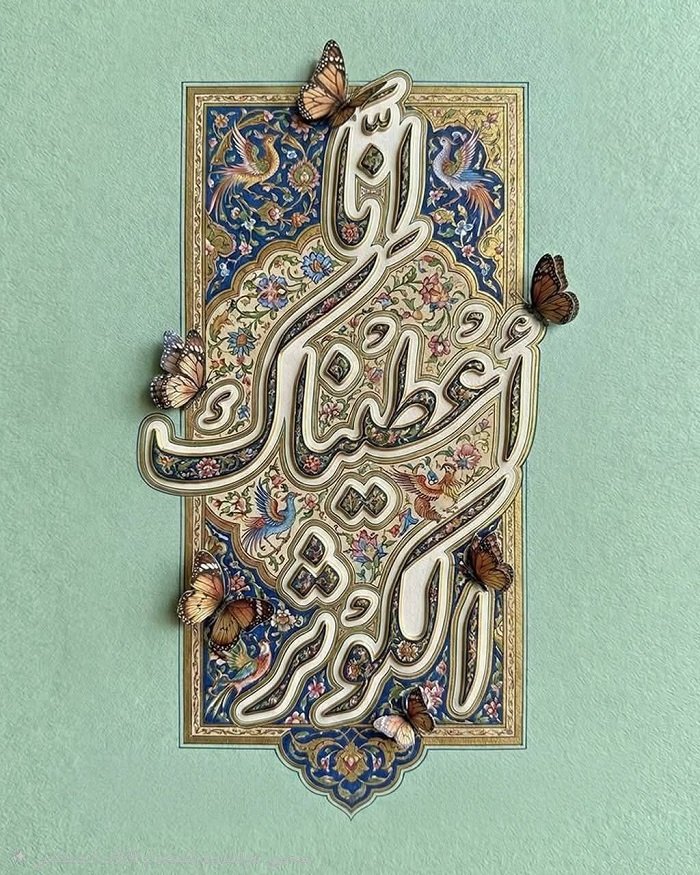 إِنَّا
أَعْطَيْنَاكَ
الْكَوْثَرَ